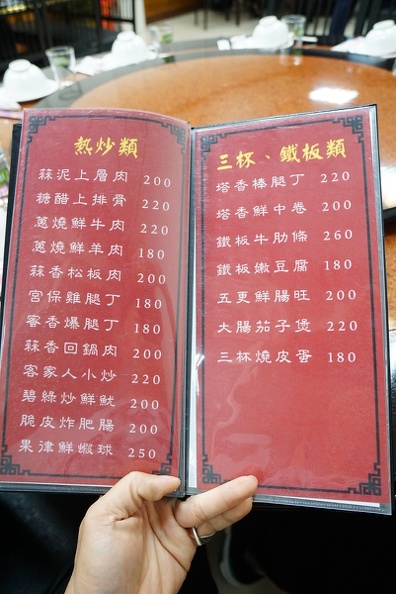 熱炒類
蒜泥上層肉 200
糖醋上排骨 220
蔥燒鮮牛肉 220
蔥燒鮮羊肉 180
蒜香松板肉 200
宮保雞腿丁 180
蜜香爆腿丁 180
蒜香回鍋肉 200
客家人小炒 220
碧綠炒鮮魷 200
脆皮炸肥腸 200
果律鮮蝦球 250
三杯、鐵板類
塔香棒腿丁 220
塔香鮮中卷 200
鐵板牛肋條 260
鐵板嫩豆腐 180
五更鮮腸旺 200
大腸茄子煲 220
三杯燒皮蛋 180